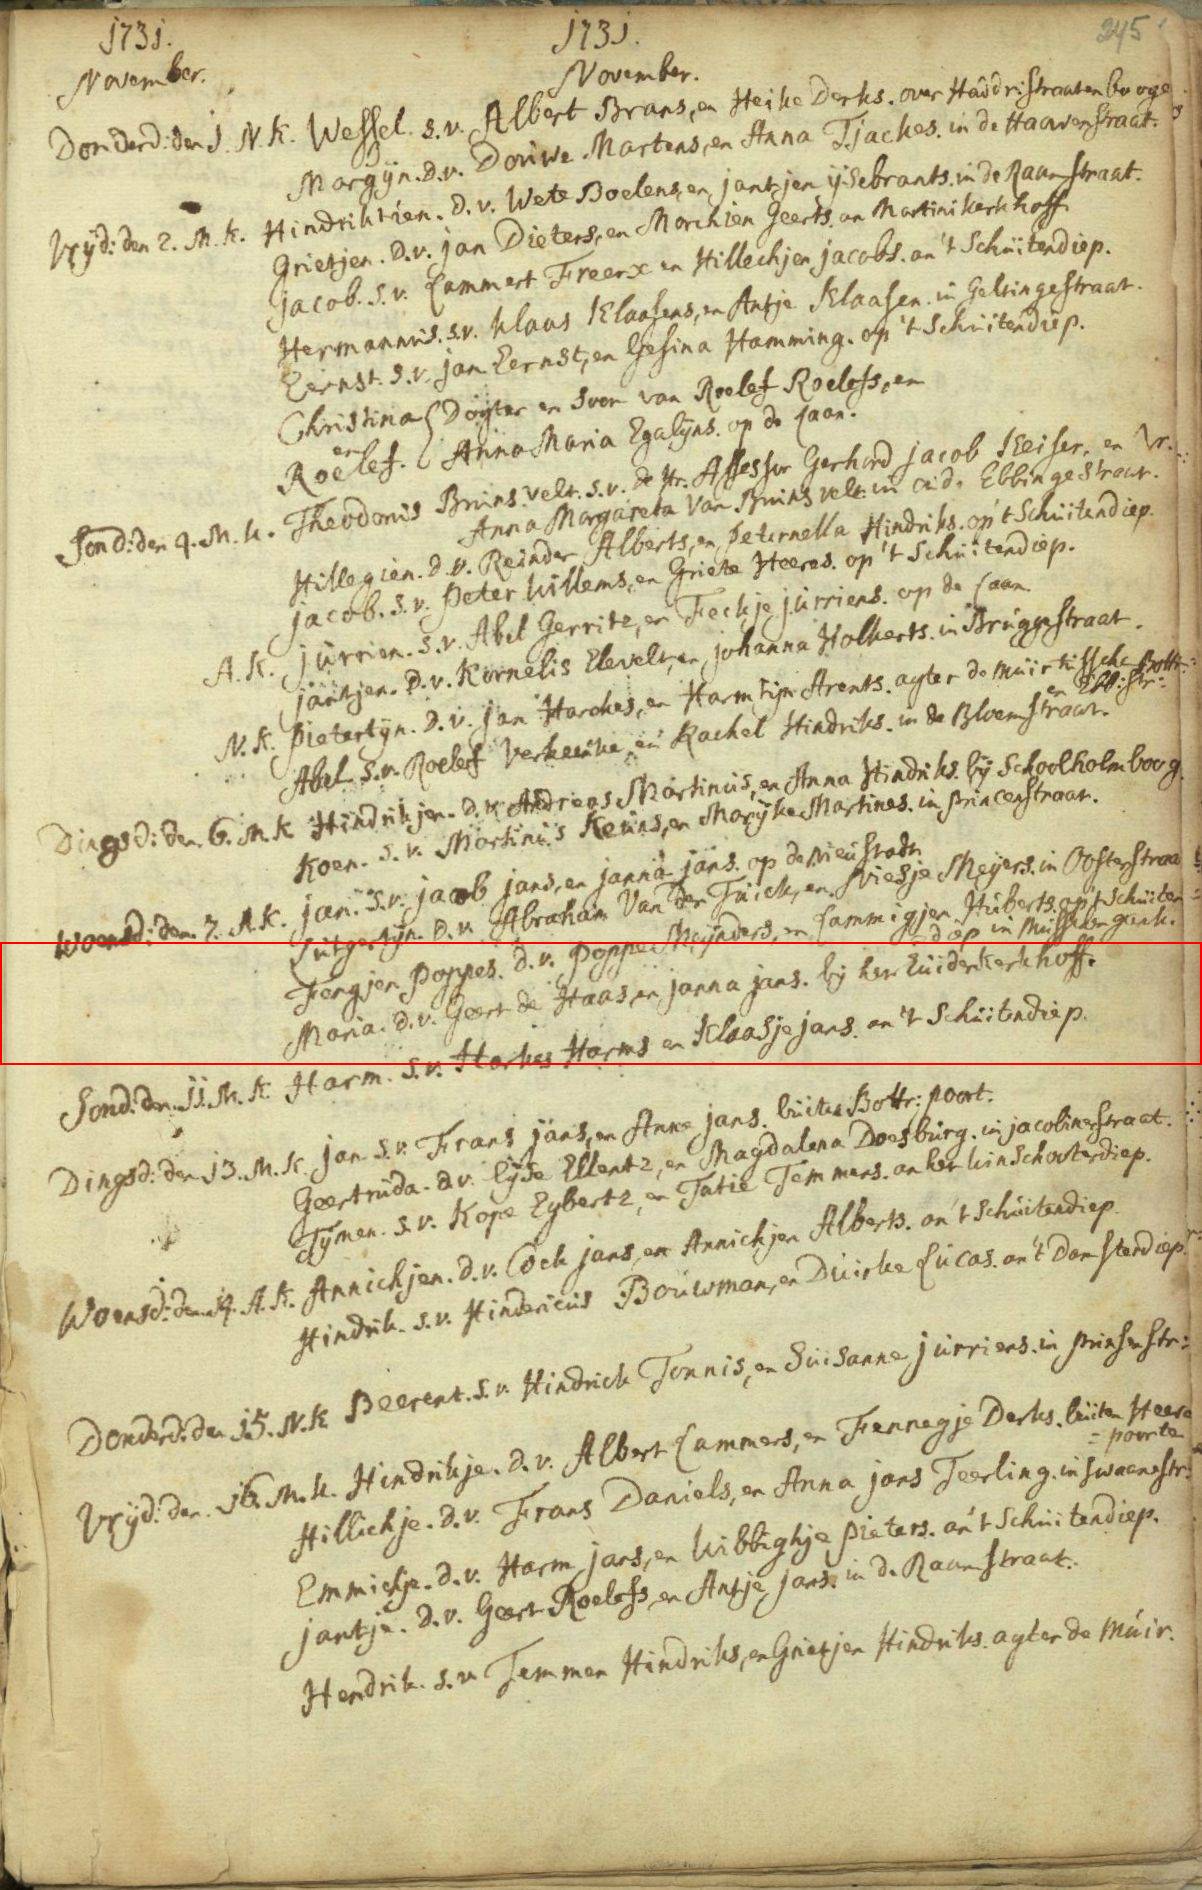 1731. 1731. 245
November. November.
Donderd: den 1. N.K. Wessel. s.v. Albert Brans, en Heike Derks. over Haddristraaten booge
Margijn. d.v. Douwe Martens, en Anna Tjackes. in de Haavenstraat.
Vrijd: den 2. M.K. Hindriktien. d.v. Wete Boelens, en jantjen ijsebrants. in de Raamstraat.
Grietjen. d.v. jan Dieters, en Marchien Geerts. an Martinikerkhoff.
jacob. s.v. Lammert Freerx en Hillechjen jacobs. an 't Schuitendiep.
Hermannus. s.v. Klaas Klaasens, en Antje Klaasen. in Gelkingestraat.
Eernst. s.v. jan Eernst, en Gesina Hamming. op 't Schuitendiep.
Christina { Dogter en Soon van Roelef Roelefs, en
en
Roelef. Anna Maria Egalijns. op de Laan.
Sond: den 4. M.K. Theodorus Bruins velt. s.v. de Hr. Assessor Gerhard jacob Keiser, en Vr.
Anna Margareta Van Bruinsvelt. in oude Ebbingestraat.
Hillegien. d.v. Reinder Alberts, en Peternella Hindriks. op 't Schuitendiep.
jacob. s.v. Peter Willems, en Griete Heeres. op 't Schuitendiep.
A.K. jurrien. s.v. Abel Gerritz, en Feckje jurriens. op de Laan.
jantjen. d.v. Kornelis Elevelt, en johanna Holkerts. in Bruggestraat.
N.K. Pietertijn. d.v. jan Harckes, en Harmtijn Arents. agter de muir tissche Bottr:
en Ebb: str:
Abel. s.v. Roelef Verkeeke, en Rachel Hindriks. in de Bloemstraat.
Dingsd: den 6. M.K. Hindrikjen. d.v. Andreas Martinus, en Anna Hindriks. bij Schoolholmboog.
Koen. s.v. Martinus Keuns, en Marijke Martines. in princenstraat.
Woensd: den 7. A.K. jan. s.v. jacob jans, en janna jans. op de Nieustadt
Lutgertijn. d.v. Abraham Van der Tuick, en Wiesje Meijers. in Oosterstraa
Fengjen Poppes. d.v. Poppe Meijnders, en Lammigjen Huberts. op 't Schuiten
diep in Musschengank.
Maria. d.v. Geert de Haas, en janna jans. bij het Zuiderkerkhoff.
Sond: den 11. M.K. Harm. s.v. Harkes Harms en Klaasje jans. an 't Schuitendiep.
Dingsd: den 13. M.K. jan. s.v. Frans jans, en Anne jans. buiten Bottr: poort.
Geertruda. d.v. Eijse Ellentz, en Magdalena Doesburg. in jacobinerstraat.
Tijmen. s.v. Kope Eybertz, en Tatie Temmens. an het Winschoterdiep.
Woensd: den 14. A.K. Annichjen. d.v. Cock jans, en Annichjen Alberts. an 't Schuitendiep.
Hindrik. s.v. Hindericus Bouwman, en Duirke Lucas. an 't Damsterdiep.
Donderd: den 15. N.K Beerent. s.v. Hindrick Tonnis, en Suisanne jurriens. in prinsenstr:
Vrijd: den 16. M.K. Hindrikje. d.v. Albert Lammers, en Fennegje Derks. buiten Heere
= poorte
Hillichje. d.v. Frans Daniels, en Anna jans Teerling. in Swaenestr:
Emmickje. d.v. Harm jans, en Wibbighje Pieters. an 't Schuitendiep.
jantje. d.v. Geert Roelefs, en Antje jans. in de Raamstraat.
Hendrik. s.v. Temmen Hindriks, en Grietjen Hindriks. agter de Muir.